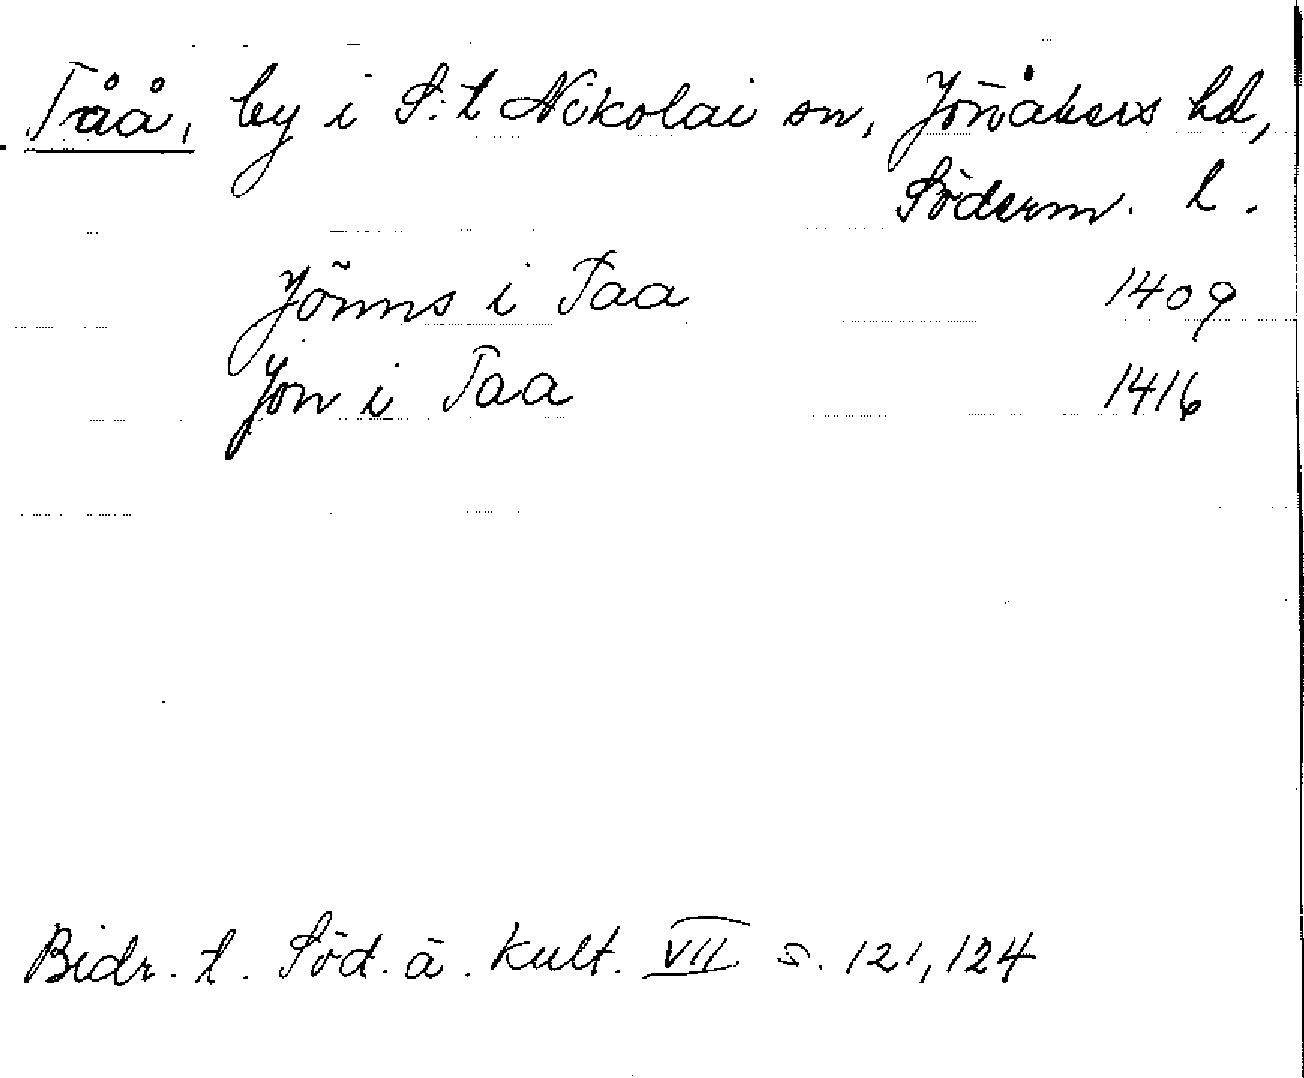 Tåå, by i S:t Nikolai sn, Jönåkers hd,
Söderm. l.
Jönns i Taa 1409
Jon i Taa 1416
Bidr. t. Söd. ä. kult. VII s. 121, 124